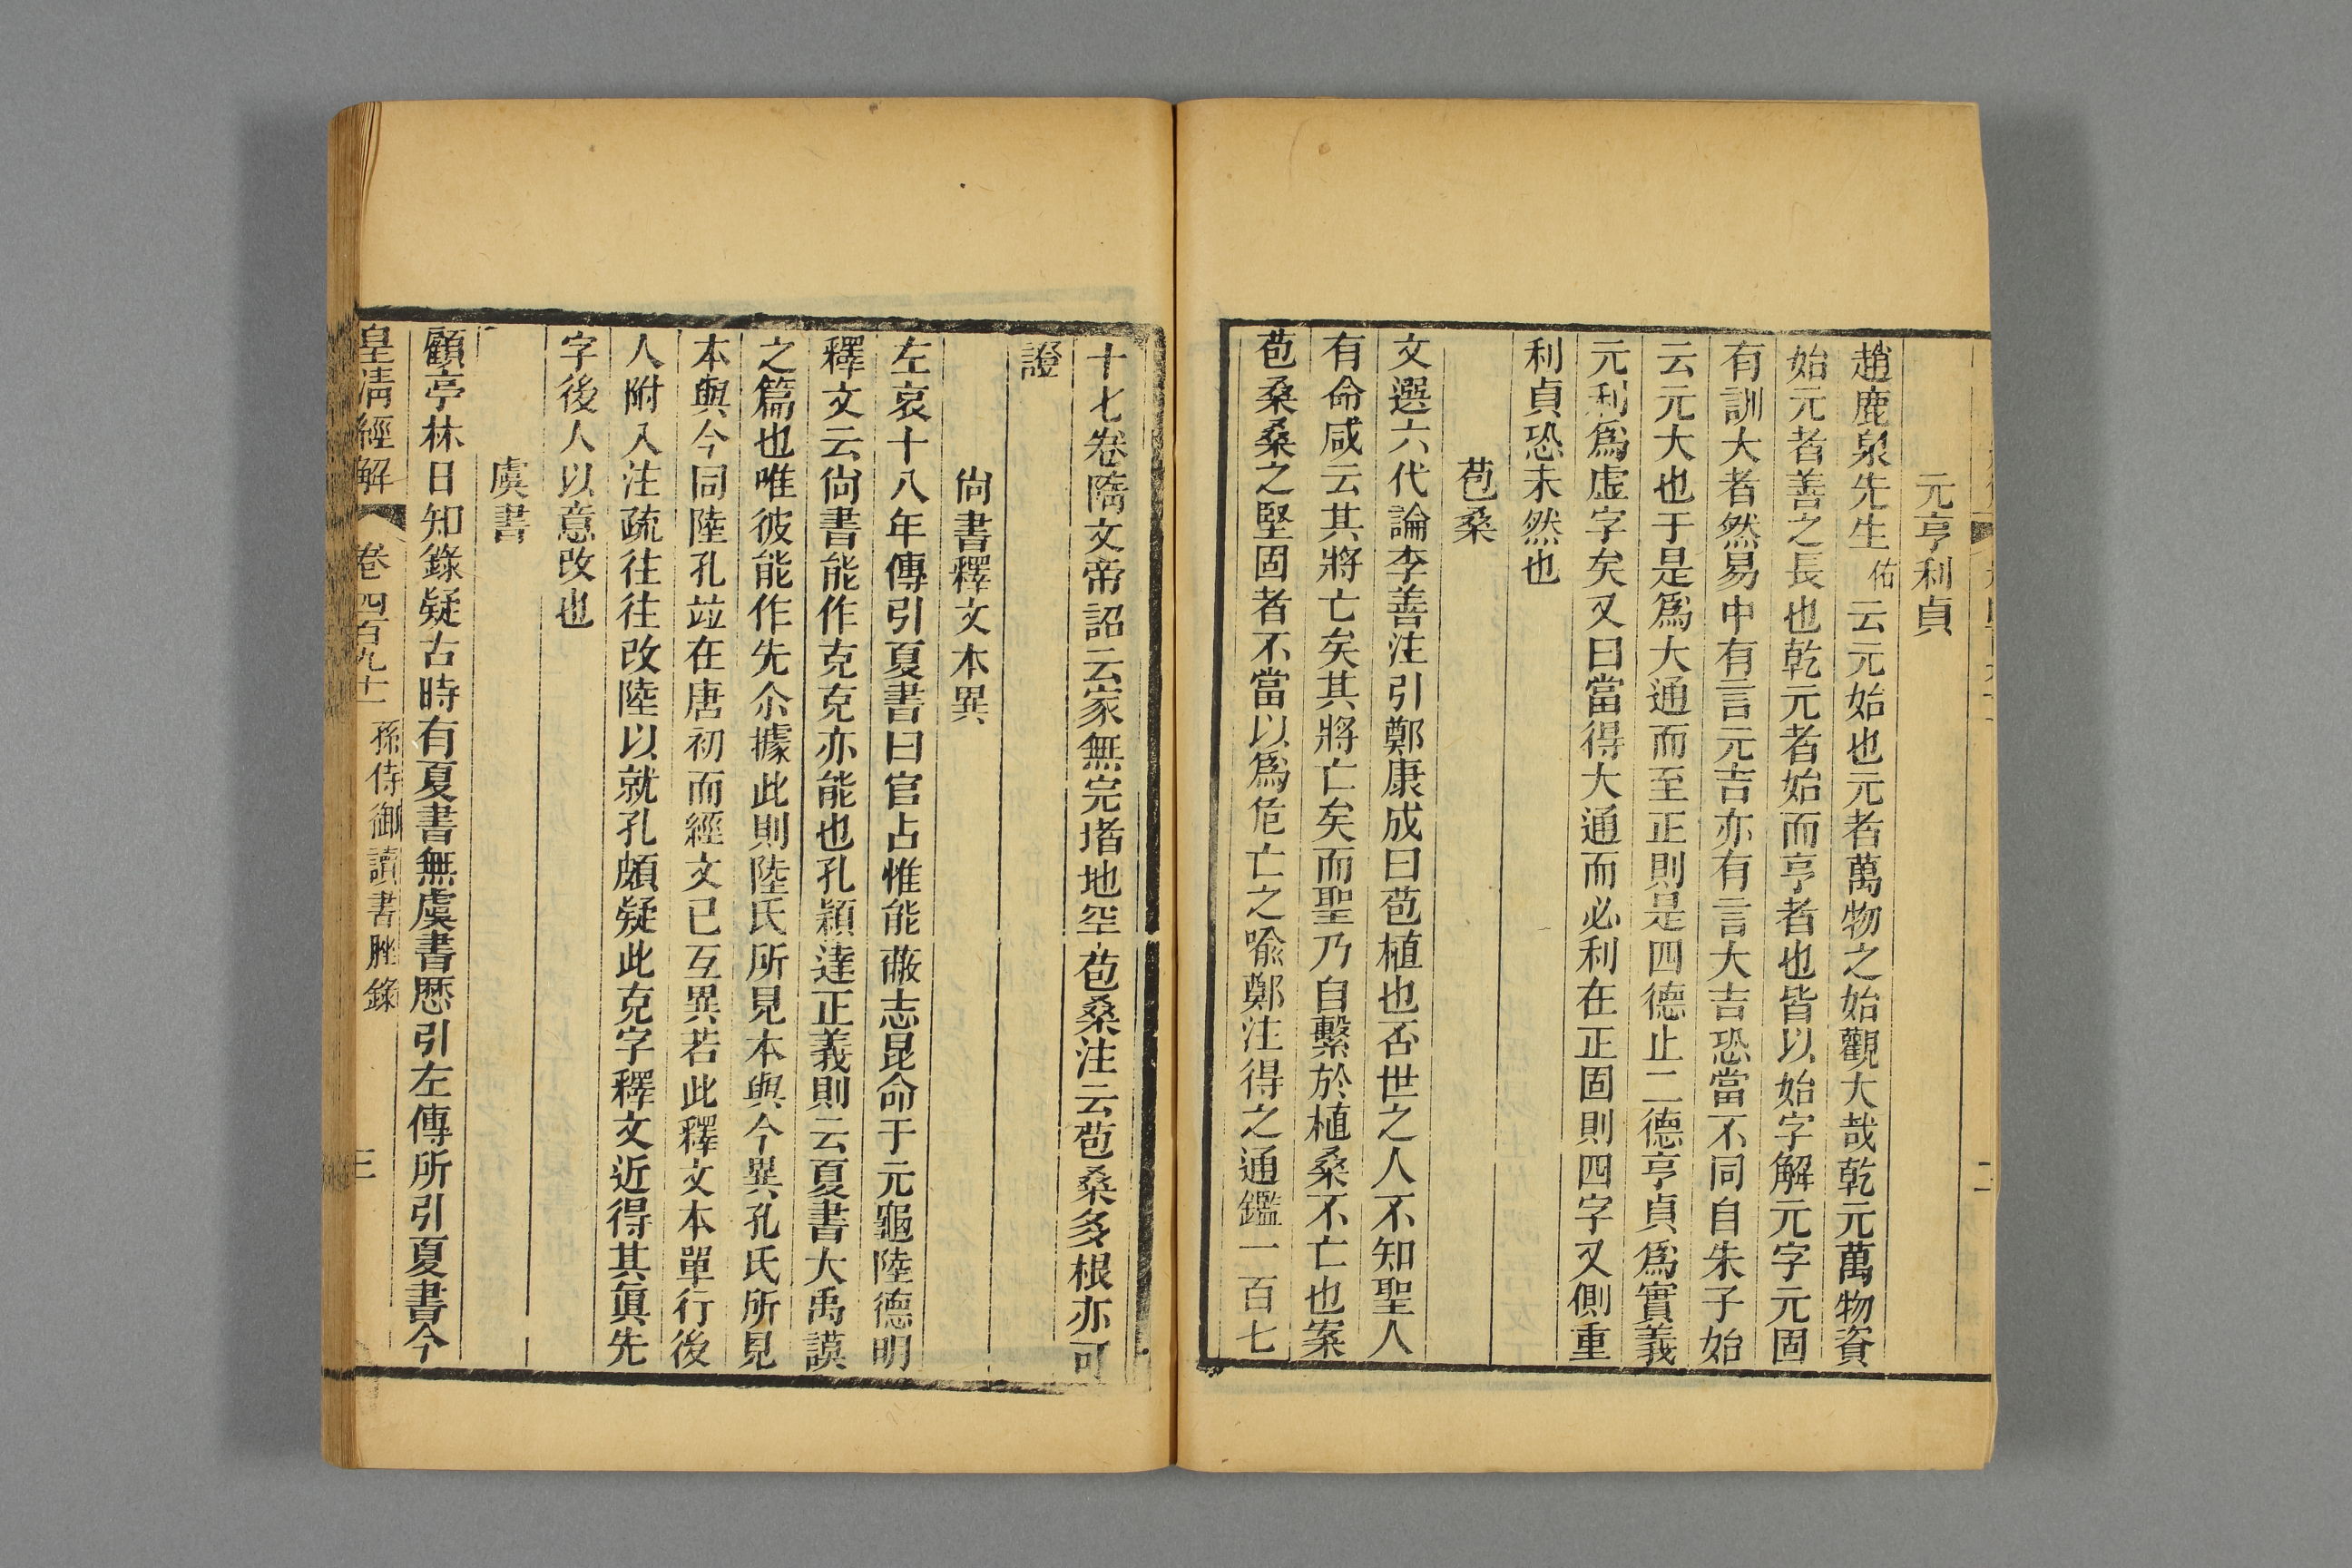 元亨利貞
趙鹿泉先生佑云元始也元者萬物之始觀大哉乾元萬物資
始元者善之長也乾元者始而亨者也皆以始字解元字元固
有訓大者然易中有言元吉亦有言大吉恐當不同自朱子始
云元大也于是爲大通而至正則是四德止二德亨貞爲實義
元利爲虛字矣又曰當得大通而必利在正固則四字又側重
利貞恐未然也
苞桑
文選六代論李善注引鄭康成曰苞植也否世之人不知聖人
有命咸云其將亡矣其將亡矣而聖乃自繫於植桑不亡也案
苞桑桑之堅固者不當以爲危亡之喻鄭注得之通鑑一百七
十七卷隋文帝詔云家無完堵地空苞桑注云苞桑多根亦可
證
尙書釋文本異
左哀十八年傳引夏書曰官占惟能蔽志昆命于元龜陸德明
釋文云尙書能作克克亦能也孔穎達正義則云夏書大禹謨
之篇也唯彼能作先尒據此則陸氏所見本與今異孔氏所見
本與今同陸孔竝在唐初而經文已互異若此釋文本單行後
人附入注疏往往改陸以就孔頗疑此克字釋文近得其眞先
字後人以意改也
虞書
顧亭林日知錄疑古時有夏書無虞書歷引左傳所引夏書今
皇淸經解 卷四百九十一 孫侍御讀書脞錄 三